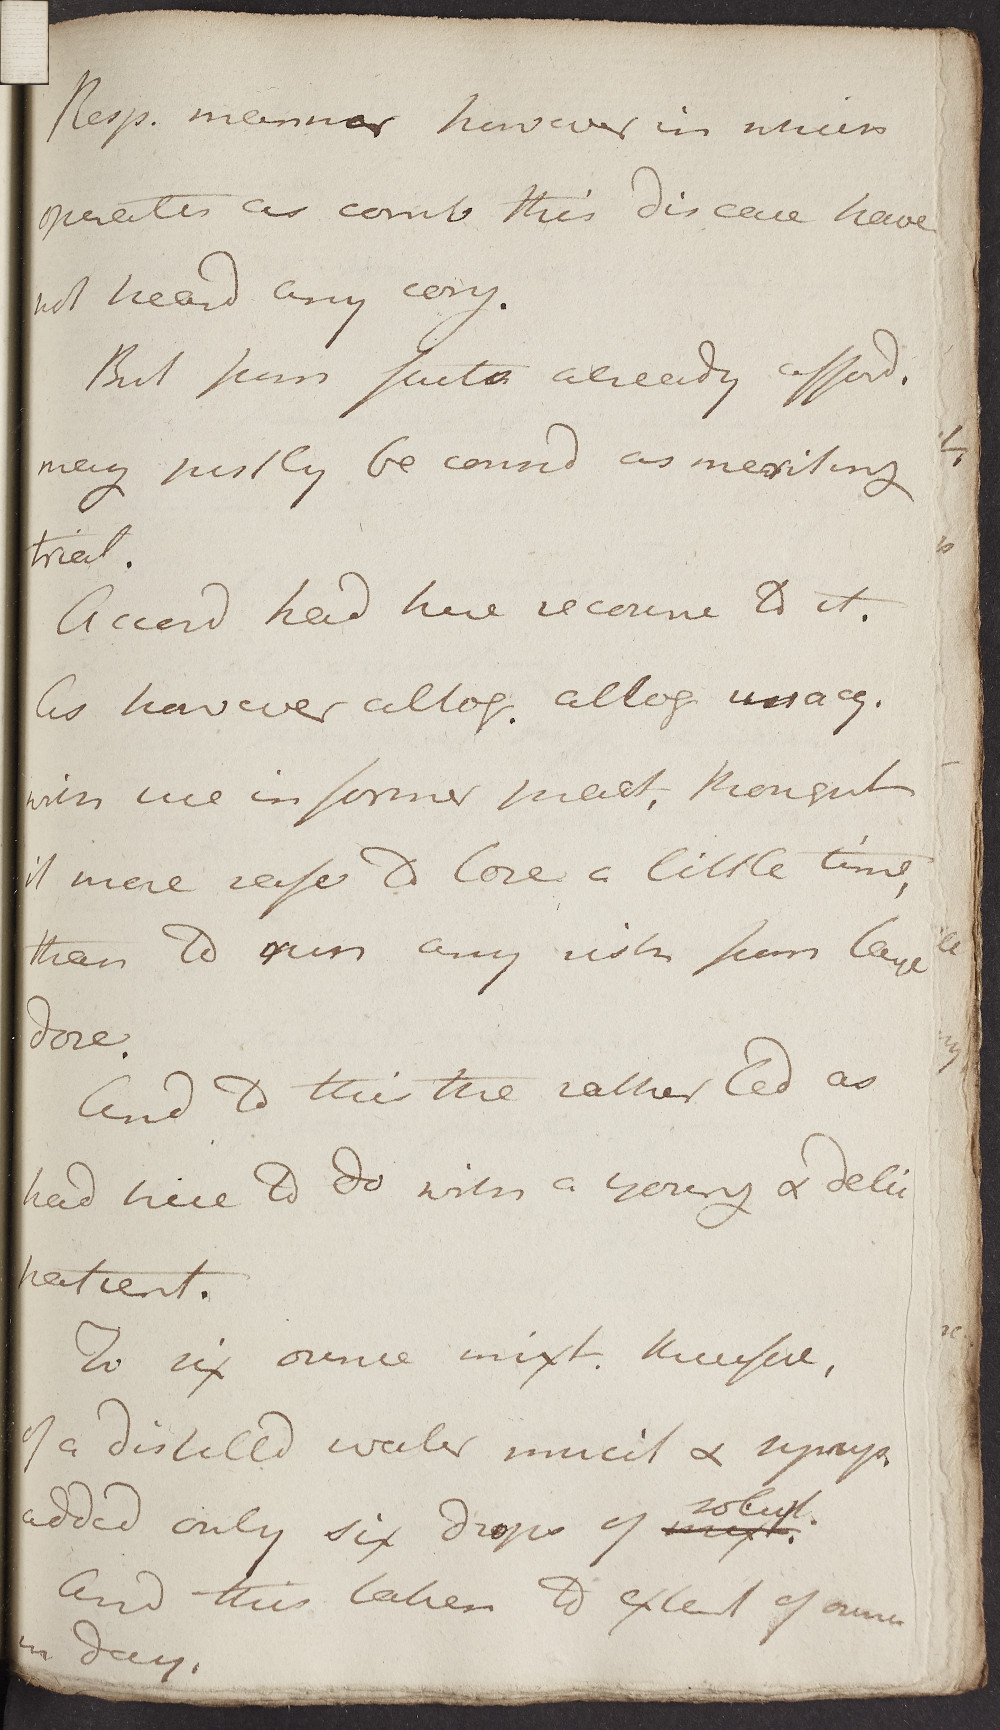 Resp. manner however in which
operates as comb this disease have
not heard any conj.
But from facts already afford.
may justly be consid as meriting
trial.
Accord had here recourse to it.
As however altog. altog unacq.
with use in former pract, thought
it more safe to lose a little time,
than to run any risk from large
dose.
And to this the rather led as
had here to do with a young & delic
patient.
To six ounce mixt. therefore,
of a distilled water mucil & syrup.
added only six drops of mixt. solut.
And this taken to extent of ounce
in day.